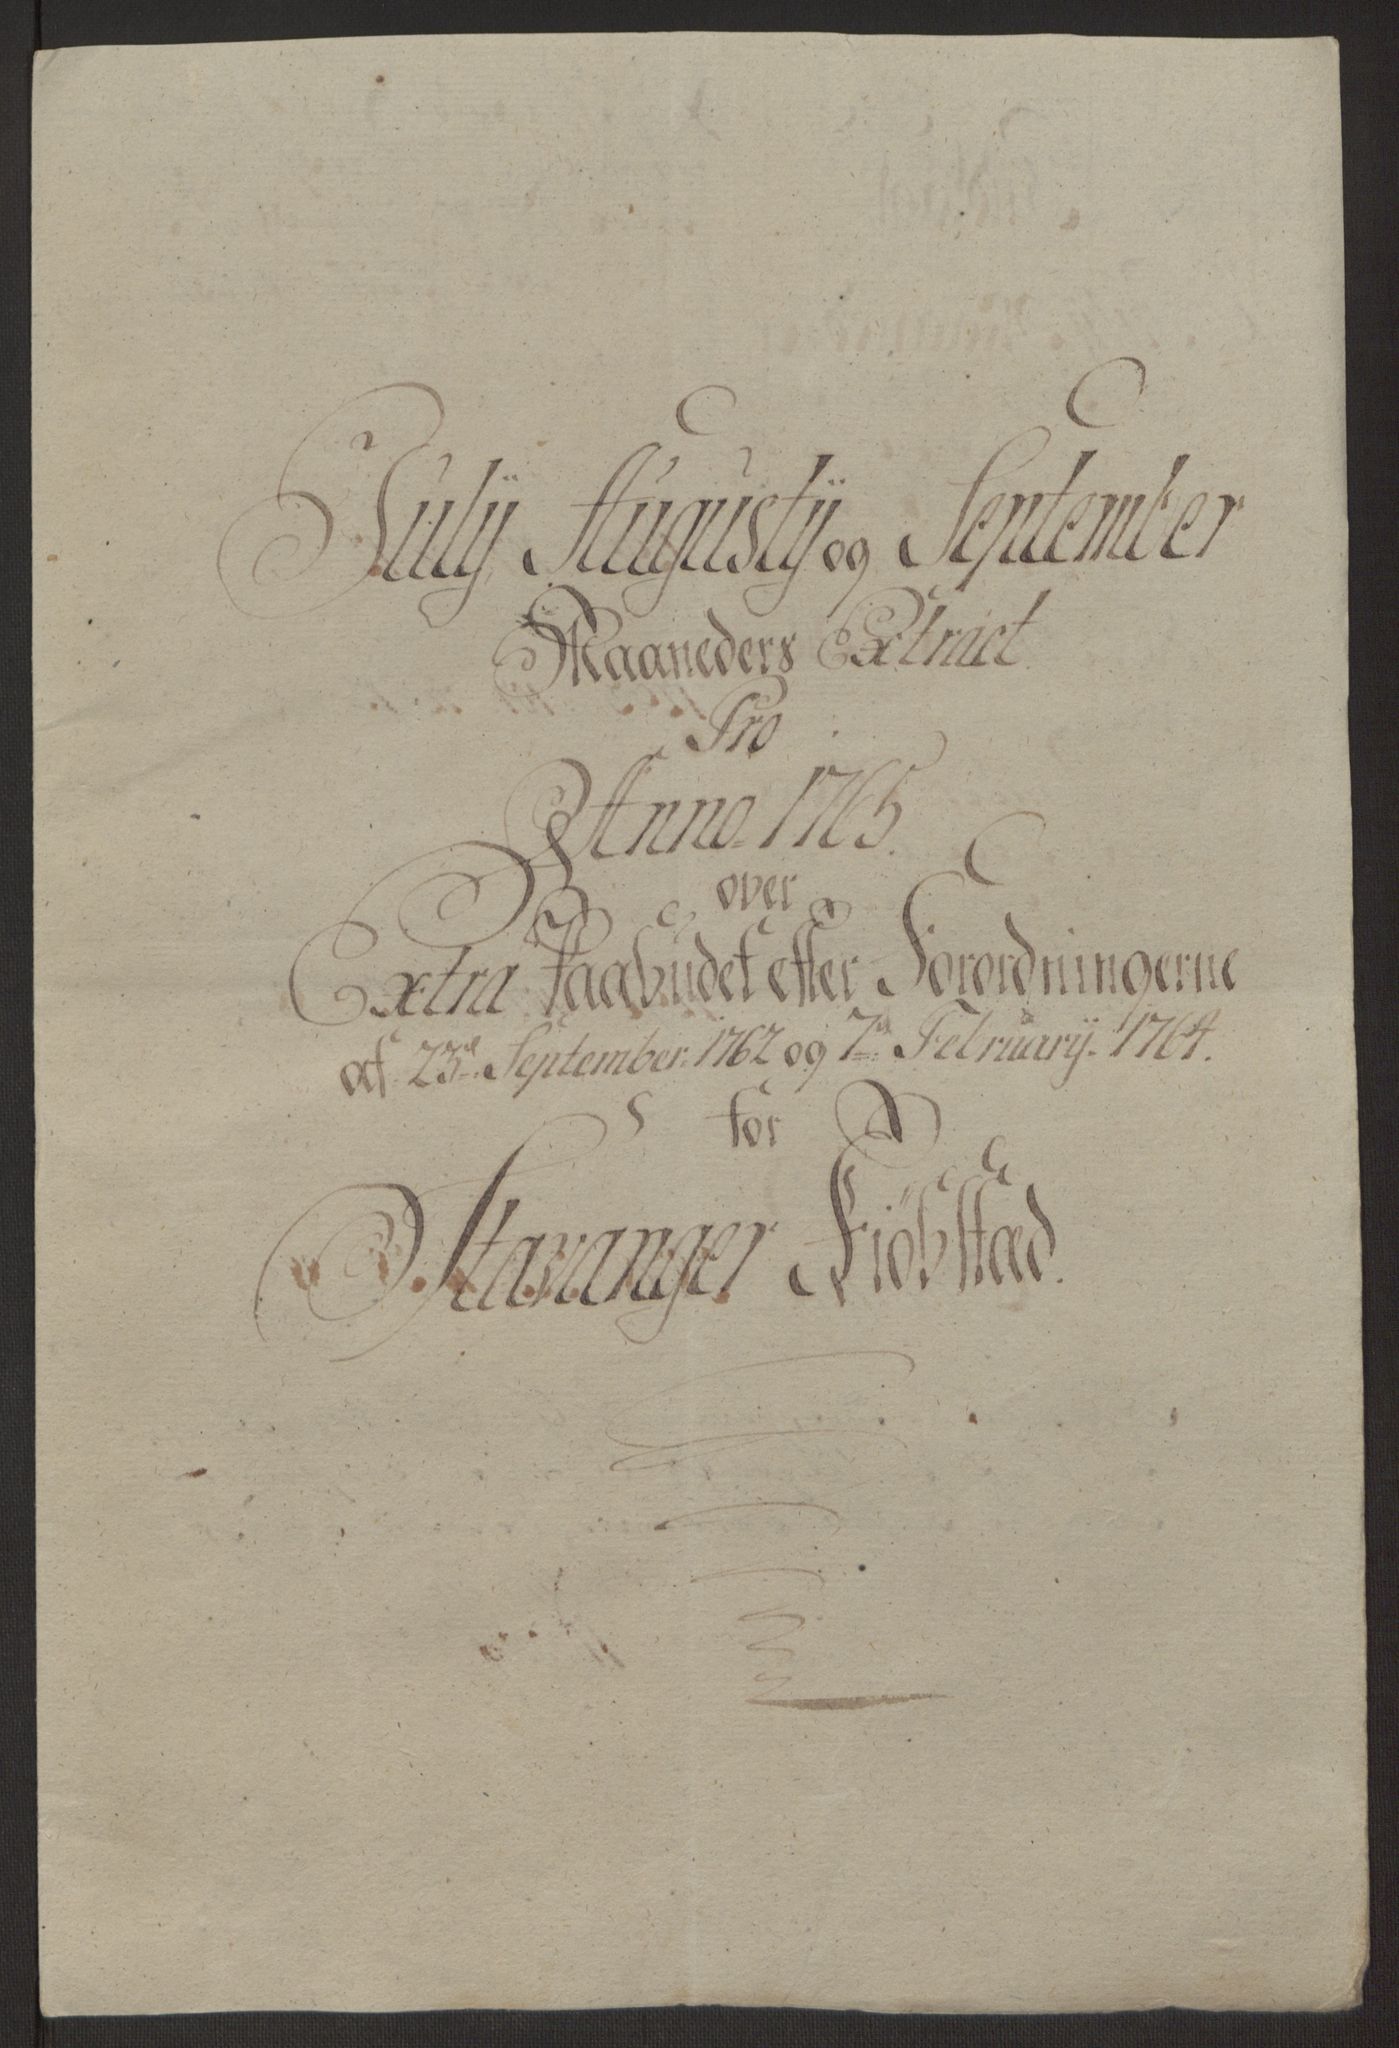 Julÿ, Augustÿ og September
Maaneders Extract
Pro
Anno 1765.
over
Extra Paabudet efter Forordningerne
af 23de September 1762 og 7de Februarÿ 1764.
for
Stavanger Kiöbstæd.